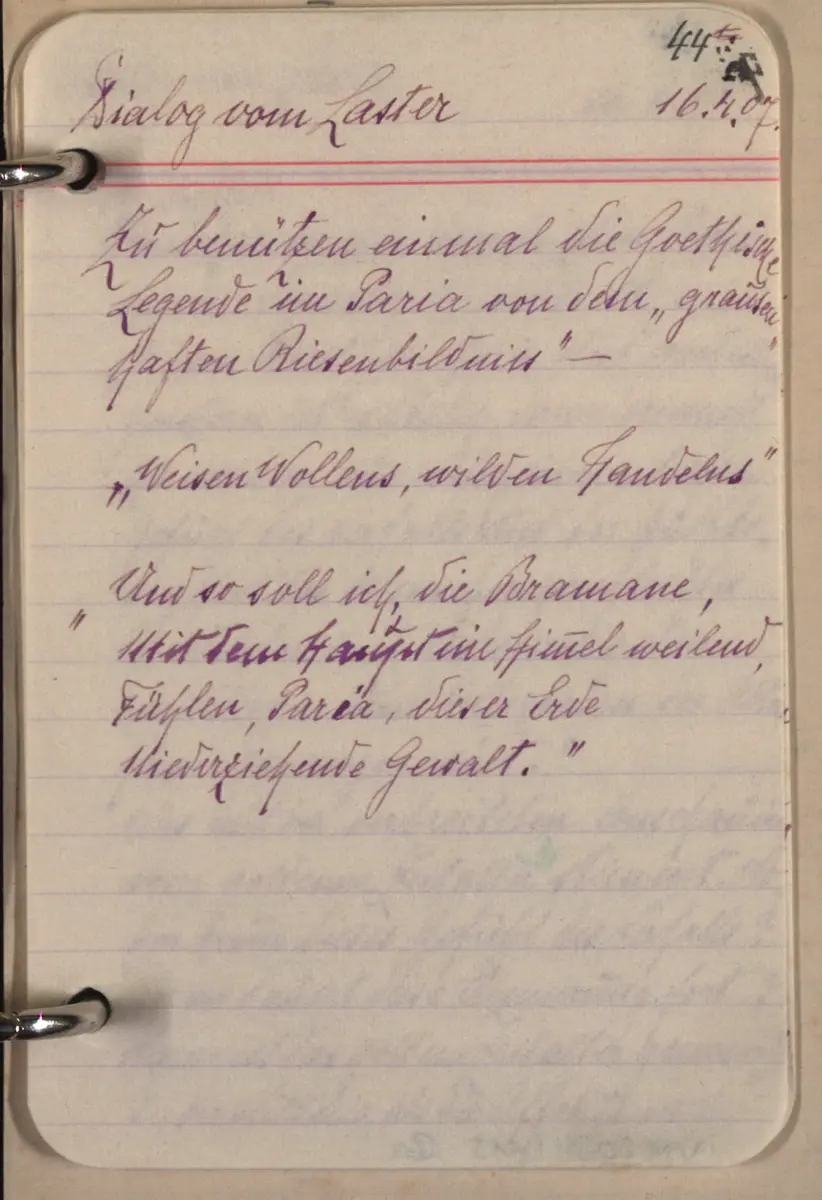 44
Dialog vom Laster 16.4.07.
Zu benützen einmal die Goethische
Legende im Paria von dem „grausen
haften Riesenbildniss" —
„Weisen Wollens, wilden Handelns"
"Und so soll ich, die Bramane,
Mit dem Haupt im Himel weilend,
Fühlen, Paria, dieser Erde
Niederziehende Gewalt."